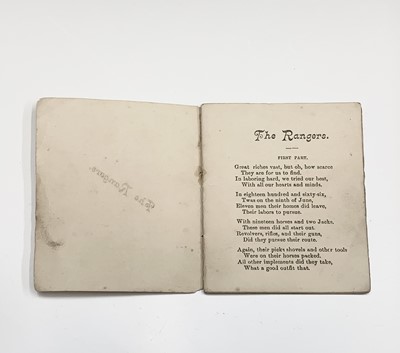 The Rangers.
The Rangers.
FIRST PART,
Great riches vast, but oh, how scarce
They are for us to find.
In laboring hard, we tried our best,
With all our hearts and minds.
In eighteen hundred and sixty-six,
Twas on the ninth of June,
Eleven men their homes did leave,
Their labors to pursue.
With nineteen horses and two Jacks.
These men did all start out.
Revolvers, rifles, and their guns,
Did they pursue their route.
Again, their picks shovels and other tools
Were on their horses packed.
All other implements did they take,
What a good outfit that.